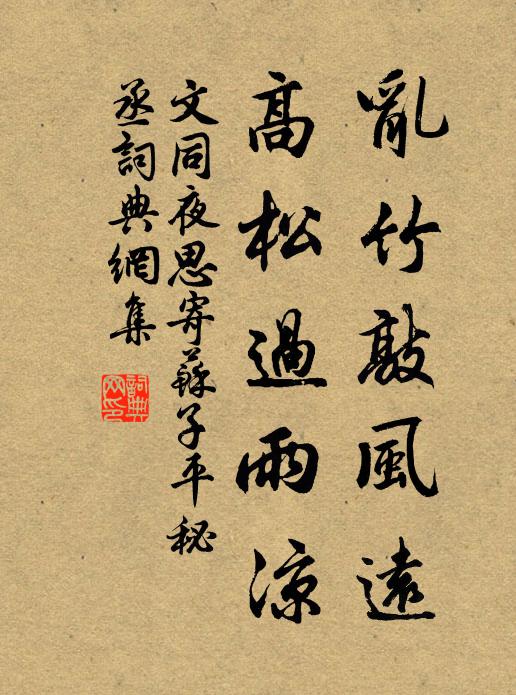 亂竹敲風遠
高松過雨涼
文同夜思寄蘇子平秘
丞詞典網集
詞典网印